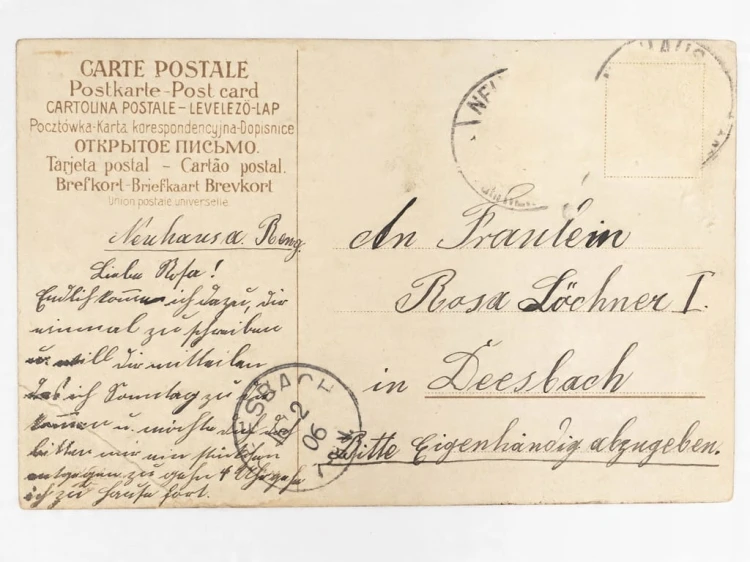 CARTE POSTALE
Postkarte - Post card
CARTOLINA POSTALE - LEVELEZŐ-LAP
Pocztówka-Karta korespondencyjna-Dopisnice
ОТКРЫТОЕ ПИСЬМО.
Tarjeta postal - Cartão postal.
Brefkort-Briefkaart Brevkort
Union postale universelle
Neuhaus a. Reng.
Liebe Rosa!
Endlich komme ich dazu, dir
einmal zu schreiben
u. will dir mitteilen
das ich Sonntag zu dir
kommen u. möchte dich
bitten mir ein stückchen
entgegen zu gehn 4 Uhr gehe
ich zu Hause fort.
An Fraulein
Rosa Löchner I.
in Deesbach
Bitte Eigenhändig abzugeben.
ESBACH
2
06